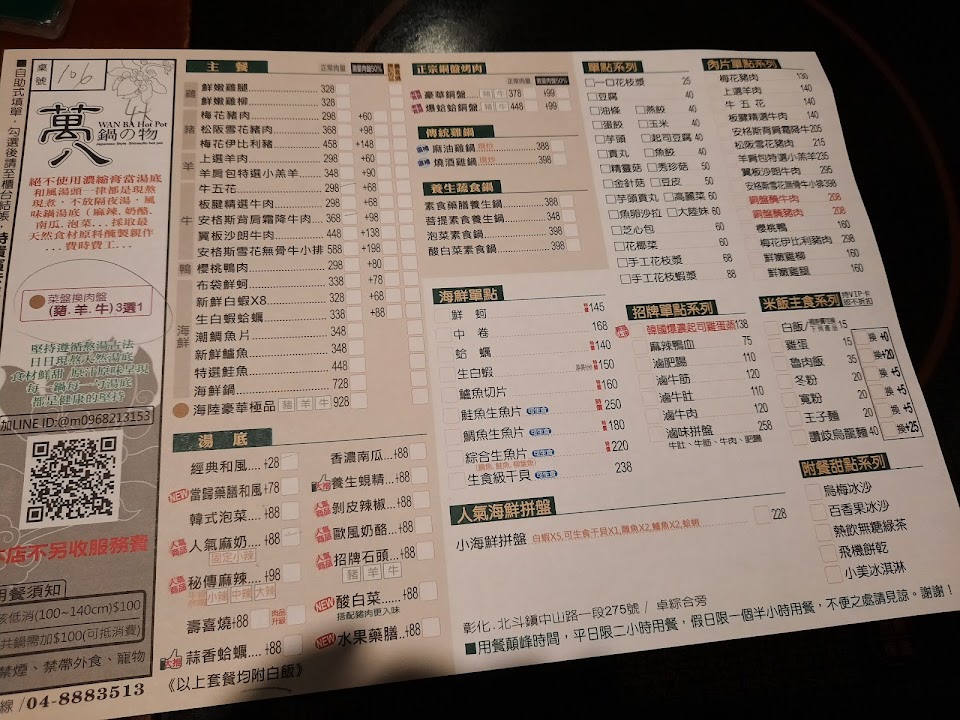 ■自助式填單，勾選後請至櫃台結帳，
桌號
106
萬八
WAN BA Hot Pot
鍋の物
Japanese Style Shabushabu hot pot
絕不使用濃縮膏當湯底
和風湯頭一律都是現熬
現煮，不放隔夜湯，風
味鍋湯底（麻辣、奶酪、
南瓜、泡菜...採取最
天然食材原料醃製親作
...費時費工...
菜盤換肉盤
(豬.羊.牛)3選1
堅持遵循熬湯古法
日日現熬天然湯底
食材鮮甜 原汁原味呈現
每一鍋每一勺湯底
都是健康的堅持
加LINE ID:@m0968213153
本店不另收服務費
用餐須知
低消(100~140cm)$100
共鍋需加$100(可抵消費)
禁煙、禁帶外食、寵物
線 /04-8883513
主餐
正常肉量
雞
鮮嫩雞腿 328
鮮嫩雞柳 328
豬
梅花豬肉 298 +60
松阪雪花豬肉 368 +98
梅花伊比利豬 458 +148
羊
上選羊肉 298 +60
羊肩包特選小羔羊 348
牛
牛五花 298 +68
板腱精選牛肉 298
安格斯背肩霜降牛肉 368 +98
翼板沙朗牛肉 338
安格斯雪花無骨牛小排 588 +198
鴨
櫻桃鴨肉 298 +80
海鮮
布袋鮮蚵 338 +78
新鮮白蝦X8 328 +68
生白蝦蛤蠣 338 +88
潮鯛魚片 348
新鮮鱸魚 348
特選鮭魚 448
海鮮鍋 728
海陸豪華極品 豬 羊 牛 928
湯底
經典和風....+28
NEW 當歸藥膳和風+78
韓式泡菜....+88
人氣商品 人氣麻奶....+88
固定小辣
人氣商品 秘傳麻辣....+98
小辣 中辣 大辣
壽喜燒+88 肉品升級
大推 蒜香蛤蠣....+88
香濃南瓜...+88
大推 養生蜆精...+88
人氣商品 剝皮辣椒...+88
人氣商品 歐風奶酪...+88
人氣商品 招牌石頭...+88
豬 羊 牛
NEW 酸白菜.....+88
搭配豬肉更入味
NEW 水果藥膳..+88
《以上套餐均附白飯》
正宗銅盤烤肉
正常肉量
豪華銅盤 豬 牛 378 +99
爆蛤蛤銅盤 豬 牛 448 +99
傳統雞鍋
麻油雞鍋 388
燒酒雞鍋 398
養生蔬食鍋
素食藥膳養生鍋 388
菩提素食養生鍋 348
泡菜素食鍋 398
酸白菜素食鍋 398
海鮮單點
鮮蚵 145
中卷 168
蛤蠣 140
生白蝦 150
鱸魚切片 160
鮭魚生魚片 可生食 時價 250
鯛魚生魚片 可生食 180
綜合生魚片 可生食 220
生食級干貝 可生食 238
人氣海鮮拼盤
小海鮮拼盤 白蝦X5,可生食干貝X1,鯛魚X2,鱸魚X2,蛤蠣 228
單點系列
一口花枝漿 25
豆腐 40
油條 燕餃 40
蛋餃 玉米 40
芋頭 起司豆腐 40
貢丸 魚餃 40
精靈菇 秀珍菇 50
金針菇 豆皮 50
芋頭貢丸 高麗菜 60
魚卵沙拉 大陸妹 60
芝心包 60
花椰菜 60
手工花枝漿 68
手工花枝蝦漿 88
招牌單點系列
韓國爆濃起司雞蛋蒸 138
麻辣鴨血 75
滷肥腸 110
滷牛筋 120
滷牛肚 110
滷牛肉 120
滷味拼盤 258
牛肚、牛筋、牛肉、肥腸
肉片單點系列
梅花豬肉 130
上選羊肉 140
牛五花 140
板腱精選牛肉 140
安格斯背肩霜降牛 205
松阪雪花豬肉 215
羊肩包特選小羔羊 235
翼板沙朗牛肉 295
安格斯雪花無骨牛小排 398
銅盤醃牛肉 208
銅盤醃豬肉 208
櫻桃鴨 160
梅花伊比利豬肉 298
鮮嫩雞柳 160
鮮嫩雞腿 160
米飯主食系列 持VIP卡恕不折扣
白飯 15 換 +0
雞蛋 15
魯肉飯 35 換 +20
冬粉 20 換 +5
寬粉 20 換 +5
王子麵 20 換 +5
讚岐烏龍麵 40 換 +25
附餐甜點系列
烏梅冰沙
百香果冰沙
熱飲無糖綠茶
飛機餅乾
小美冰淇淋
彰化.北斗鎮中山路一段275號 / 卓綜合旁
■用餐顛峰時間，平日限二小時用餐，假日限一個半小時用餐，不便之處請見諒。謝謝！